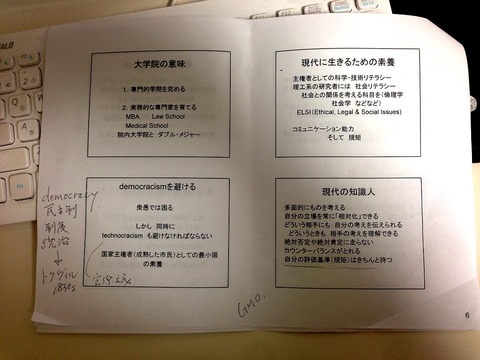 大学院の意味
1. 専門的学問を究める
2. 実務的な専門家を育てる
MBA Law School
Medical School
院内大学院と ダブル・メジャー
現代に生きるための素養
主権者としての科学・技術リテラシー
理工系の研究者には 社会リテラシー
社会との関係を考える科目を(倫理学
社会学 などなど)
ELSI(Ethical, Legal & Social Issues)
コミュニケーション能力
そして 規矩
democracismを避ける
衆愚では困る
しかし 同時に
technocracism も避けなければならない
国家主権者(成熟した市民)としての最小限
の素養
現代の知識人
多面的にものを考える
自分の立場を常に「相対化」できる
どういう相手にも 自分の考えを伝えられる
どういうときも 相手の考えを理解できる
絶対否定や絶対肯定に走らない
カウンターバランスがとれる
自分の評価基準(規矩)はきちんと持つ
democracy
民主制
制度
統治
↓
トクヴィル
1830s
GMO.
6